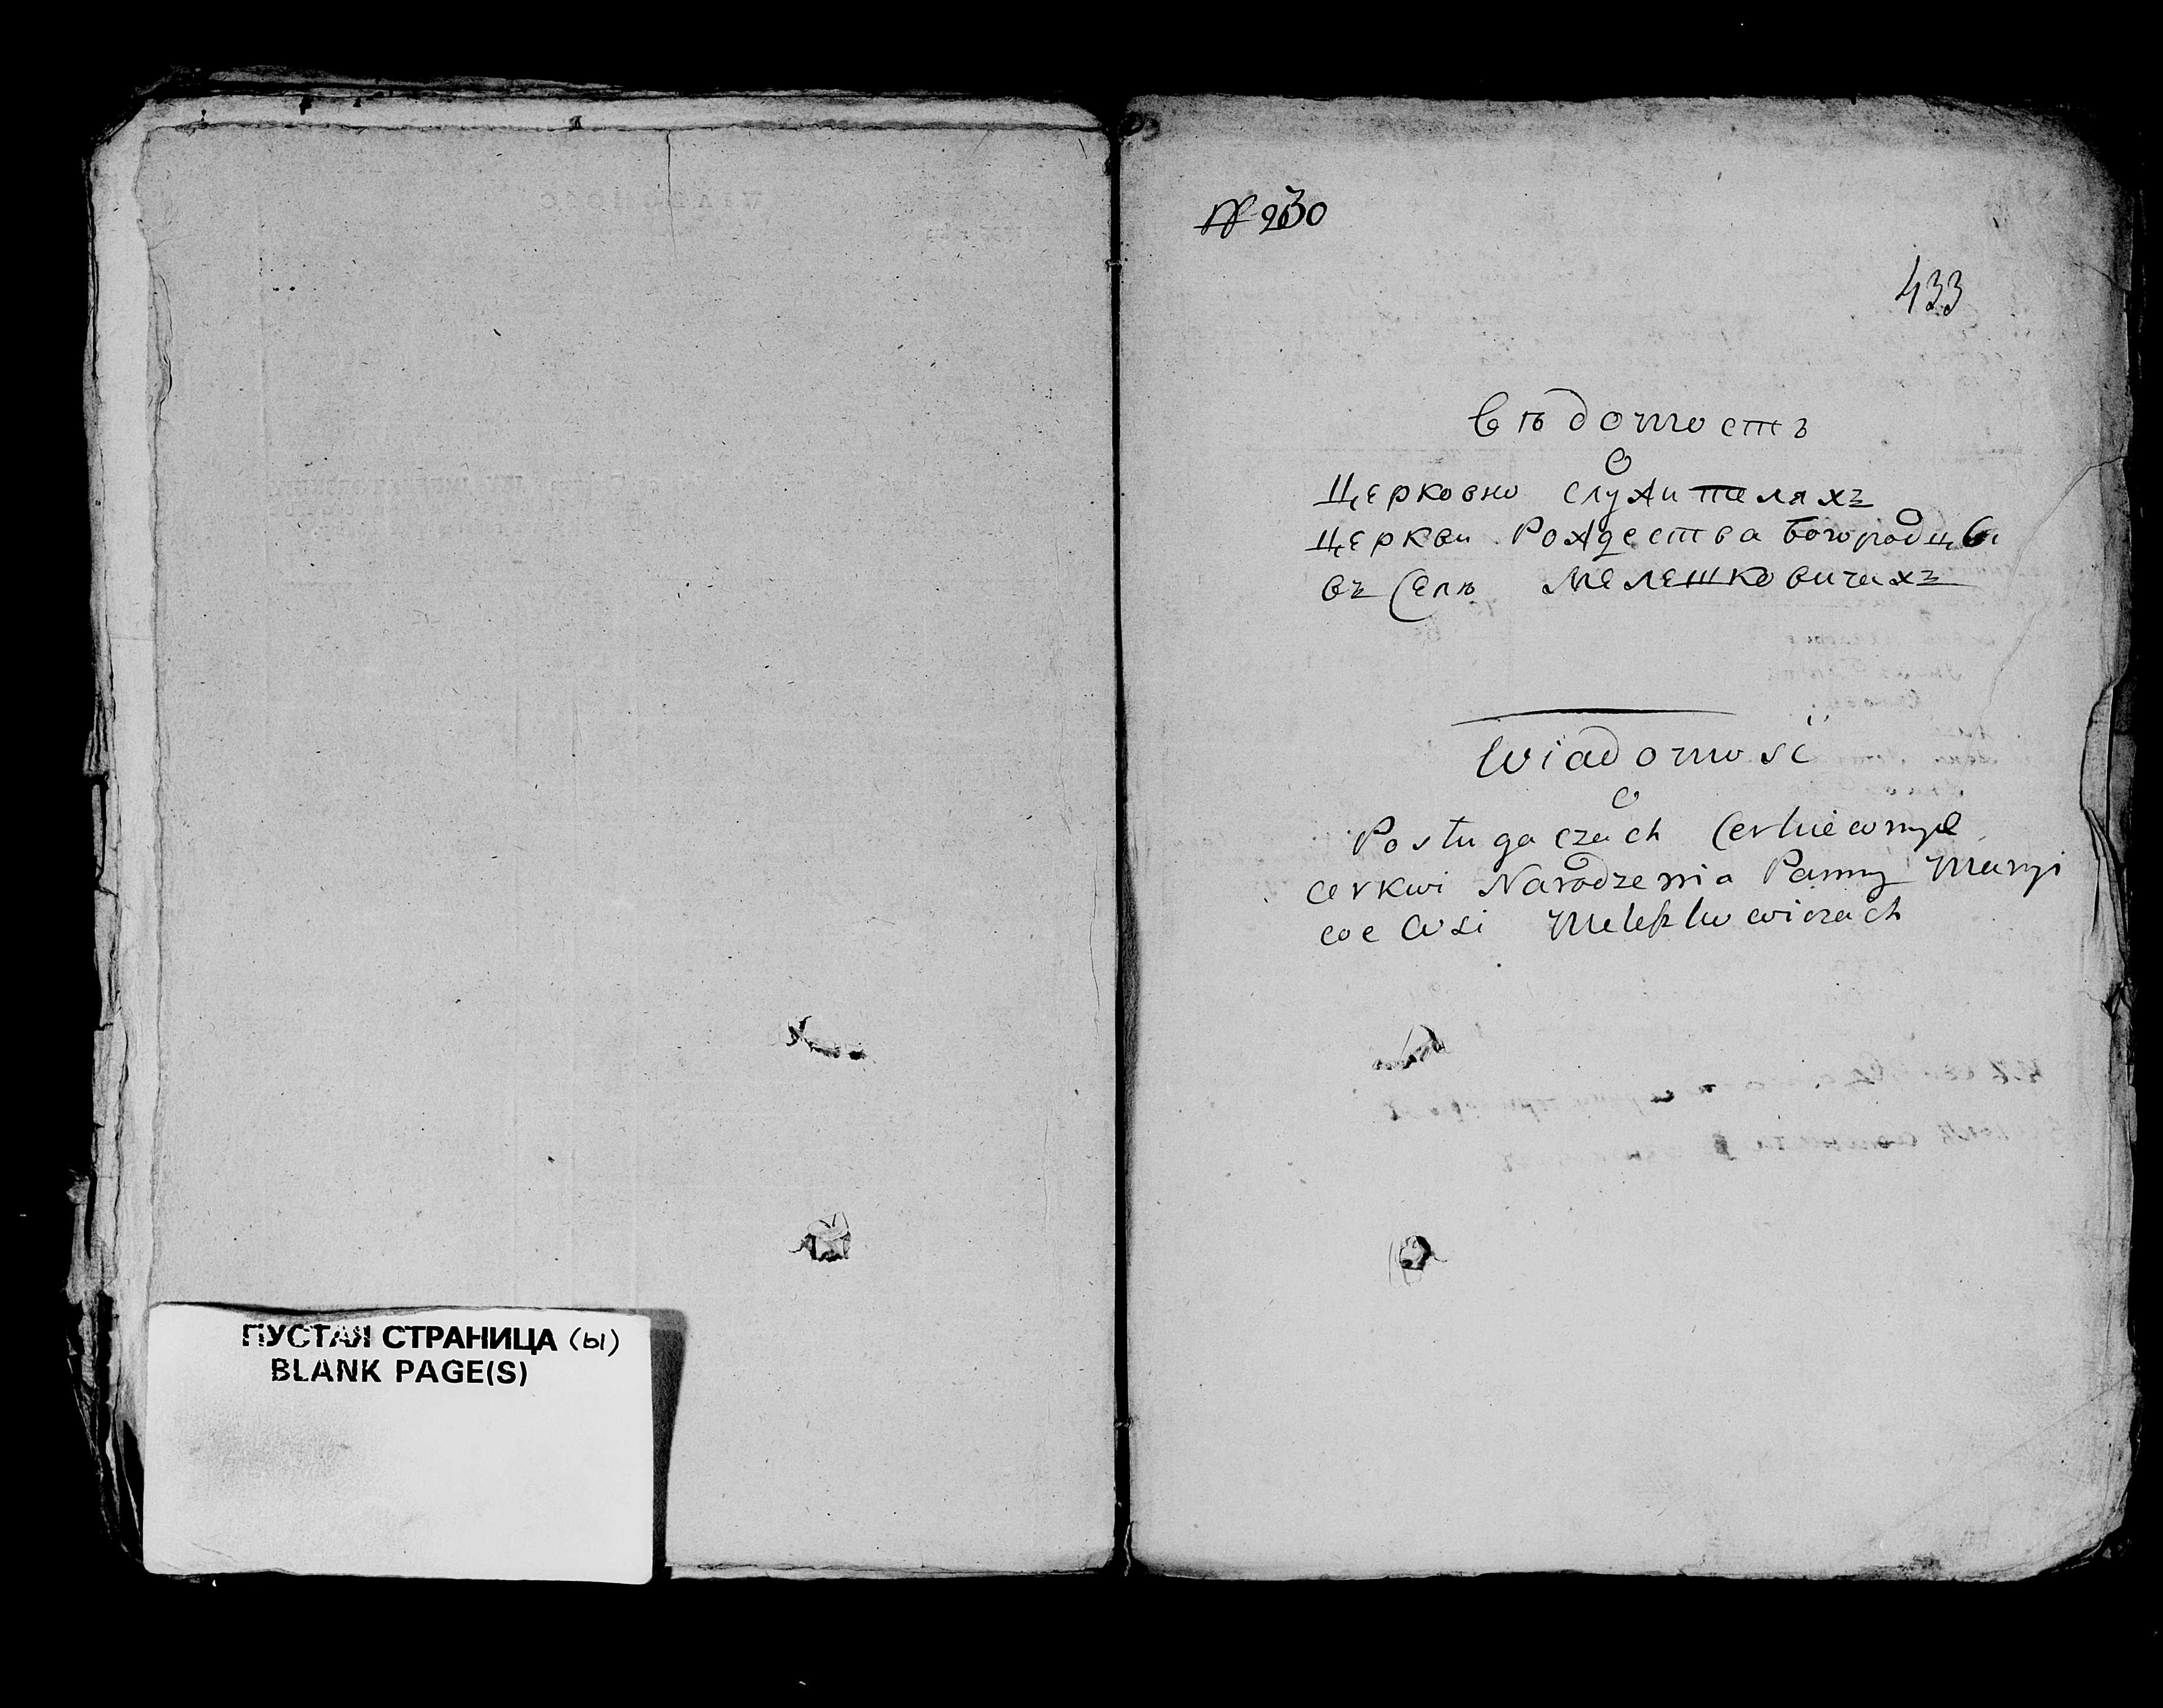 ПУСТАЯ СТРАНИЦА (ы)
BLANK PAGE(S)
№ 230
433
Вѣдомость
О
Церковно Служителяхъ
Церкви Рождества Богородцы
въ Селѣ Мелешковичахъ
Wiadomość
O
Posługaczach Cerkiewnych
Cerkwi Narodzenia Panny Maryi
we Wsi Meleszkowiczach